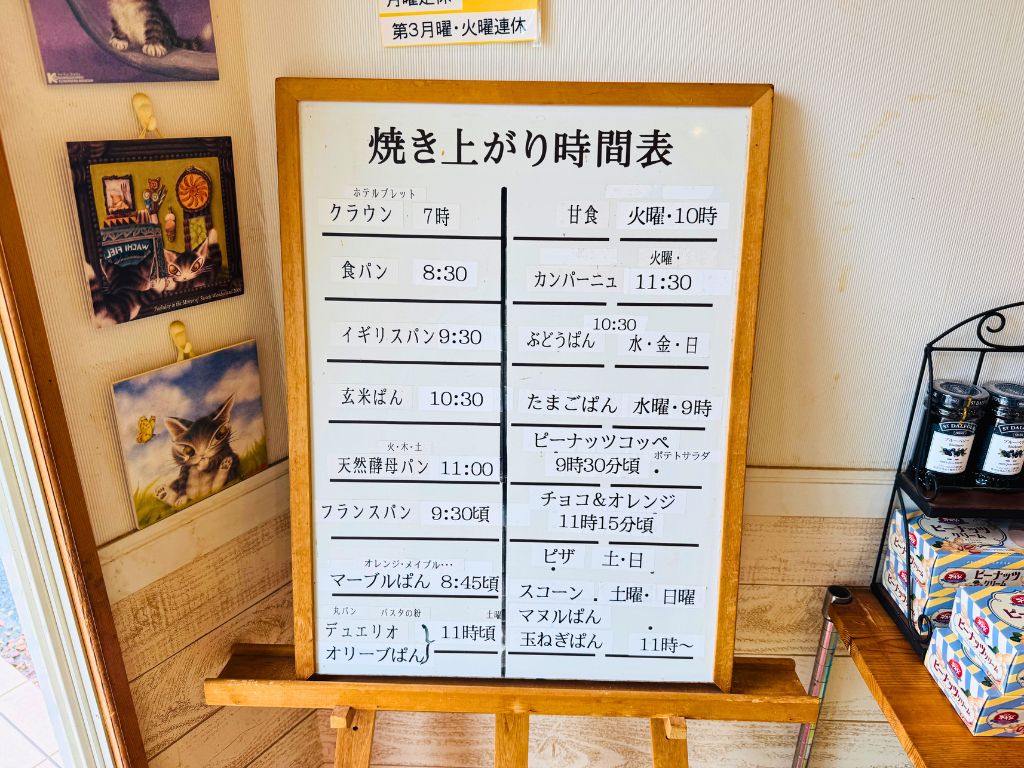 第3月曜・火曜連休
焼き上がり時間表
ホテルブレット
クラウン 7時
食パン 8:30
イギリスパン 9:30
玄米ぱん 10:30
火・木・土
天然酵母パン 11:00
フランスパン 9:30頃
オレンジ・メイプル・・・
マーブルぱん 8:45頃
丸パン パスタの粉 土曜
デュエリオ
オリーブぱん } 11時頃
甘食 火曜・10時
火曜・
カンパーニュ 11:30
10:30
ぶどうぱん 水・金・日
たまごぱん 水曜・9時
ピーナッツコッペ
9時30分頃・ポテトサラダ
チョコ&オレンジ
11時15分頃
ピザ 土・日
スコーン . 土曜・日曜
マヌルぱん
玉ねぎぱん 11時～
WACHI FIEL
ST DALFOUR
ピーナッツ
クリーム
ピーナッツ
クリーム